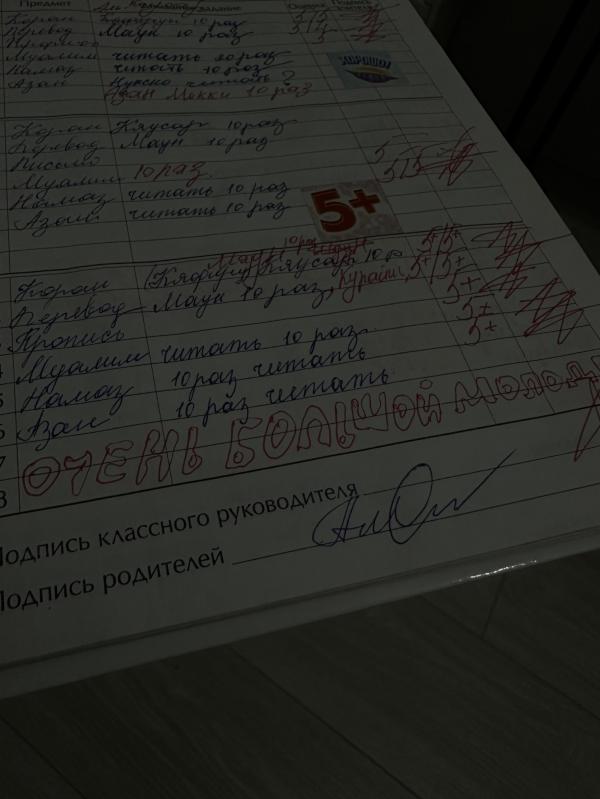 Предмет задание Оценка Подпись
Коран 10 раз 5/5
Перевод Маун 10 раз 5/5
Пропись 5
Муалим читать 10 раз
ХОРОШО!
Намаз читать 10 раз
Азан Нужно читать 2
Азан Мекки 10 раз
Коран Кяусар 10 раз
Перевод Маун 10 раз
Письмо 5
Муалим 10 раз. 5/5
Намаз читать 10 раз
Азан читать 10 раз
5+
Маун 10 раз
Коран Кяусар 10 р 5+/5+
Перевод Маун 10 раз, Курайш, 5+/5+
Пропись 5+
Муалим читать 10 раз 5+
5 Намаз 10 раз читать 5+
6 Азан 10 раз читать
7 ОЧЕНЬ БОЛЬШОЙ МОЛОД
8
Подпись классного руководителя
Подпись родителей